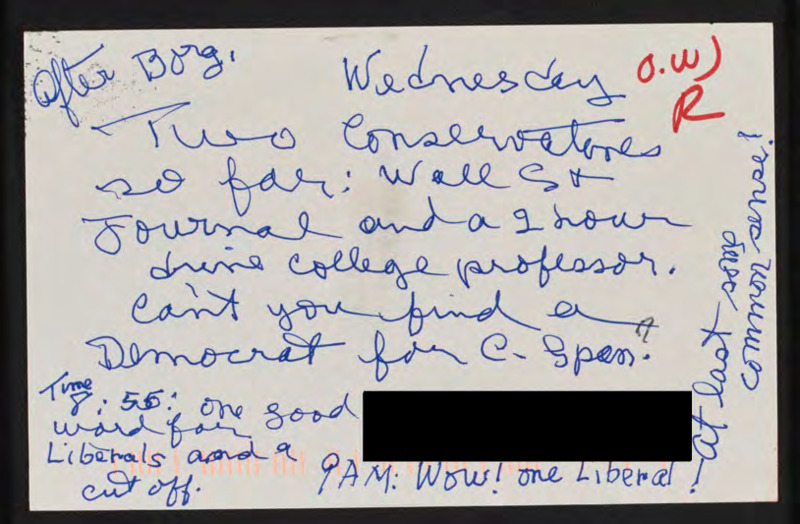 After Borg.
Wednesday
O.W)
R
Two Conservatives
so far: Wall St
Journal and a 2 hour
drive college professor.
Can't you find a
Democrat for C-Span?
Time
8:55: one good
word for
Liberals and a
cut off.
9AM: Wow! one Liberal!
At last
common sense!